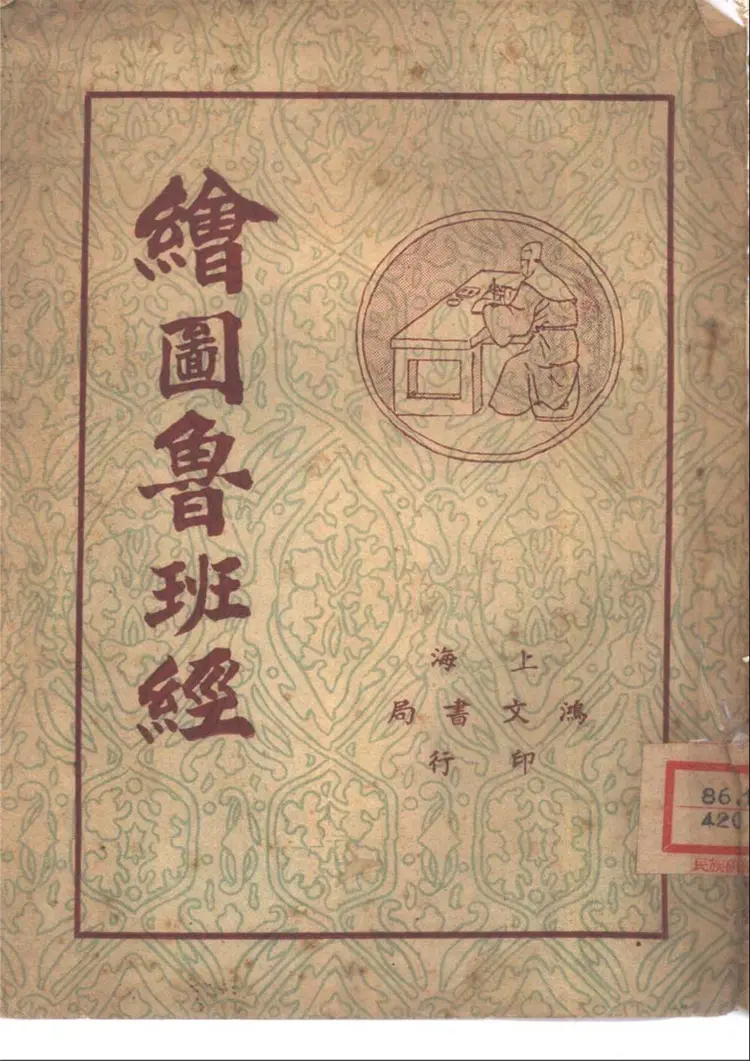 繪圖魯班經
上海
鴻文書局
印行
86.
420
民族